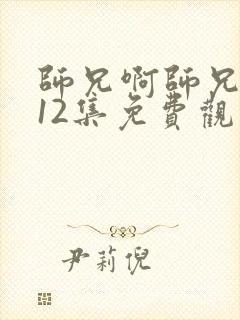 師兄啊師兄
12集免費觀
尹莉倪